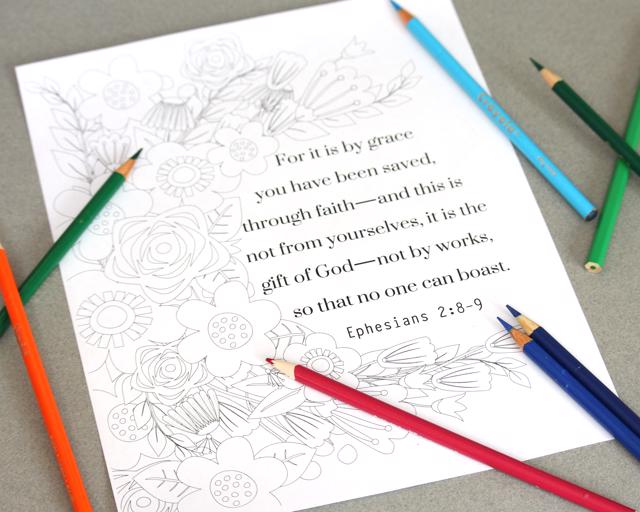 For it is by grace
you have been saved,
through faith—and this is
not from yourselves, it is the
gift of God—not by works,
so that no one can boast.
Ephesians 2:8-9